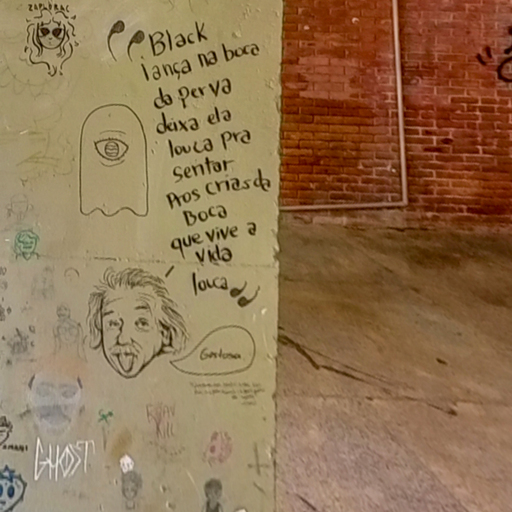 Black
lança na boca
da perva
deixa ela
louca pra
sentar
pros crias da
Boca
que vive a
vida
louca
Gostosa
GHOST